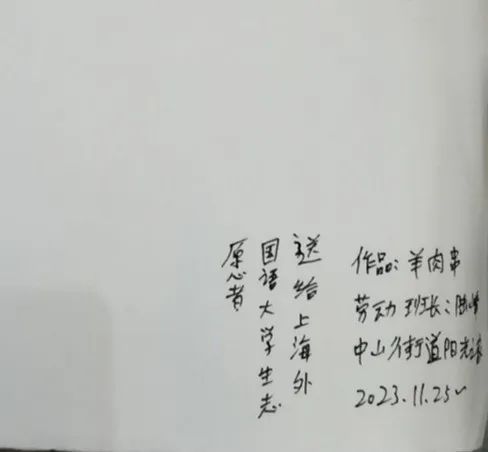 送给上海外
国语大学生志
愿者
作品:羊肉串
劳动班长:陆
中山街道阳光
2023.11.25